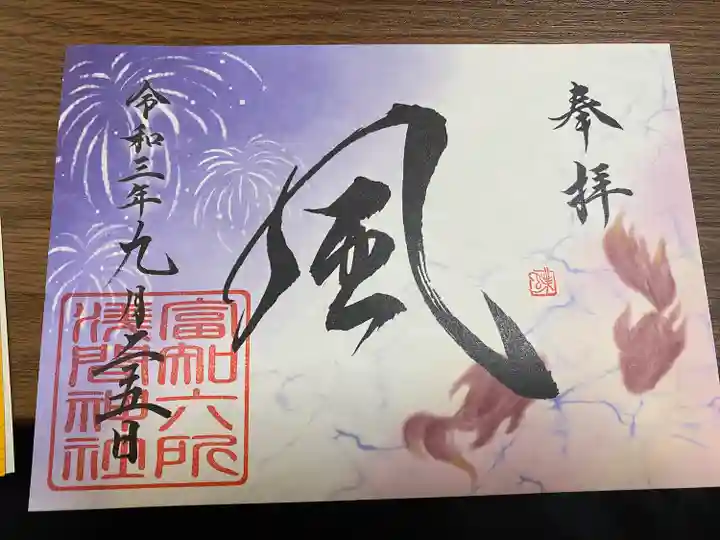 奉拝
風
令和三年九月二十五日
富知六所
浅間神社